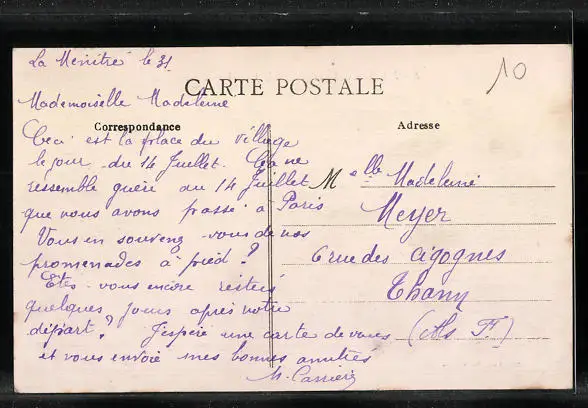 La Ménitré le 31
10
CARTE POSTALE
Mademoiselle Madeleine
Correspondance
Adresse
Ceci est la place du village
le jour du 14 Juillet. Ça ne
ressemble guère au 14 Juillet
que nous avons passé à Paris
Vous en souvenez vous de nos
promenades à pied ?
Êtes-vous encore restés
quelques jours après notre
départ ? J'espère une carte de vous
et vous envoie mes bonnes amitiés
M. Carrière
Melle Madeleine
Meyer
6 rue des Cigognes
Thann
(Als Fr)